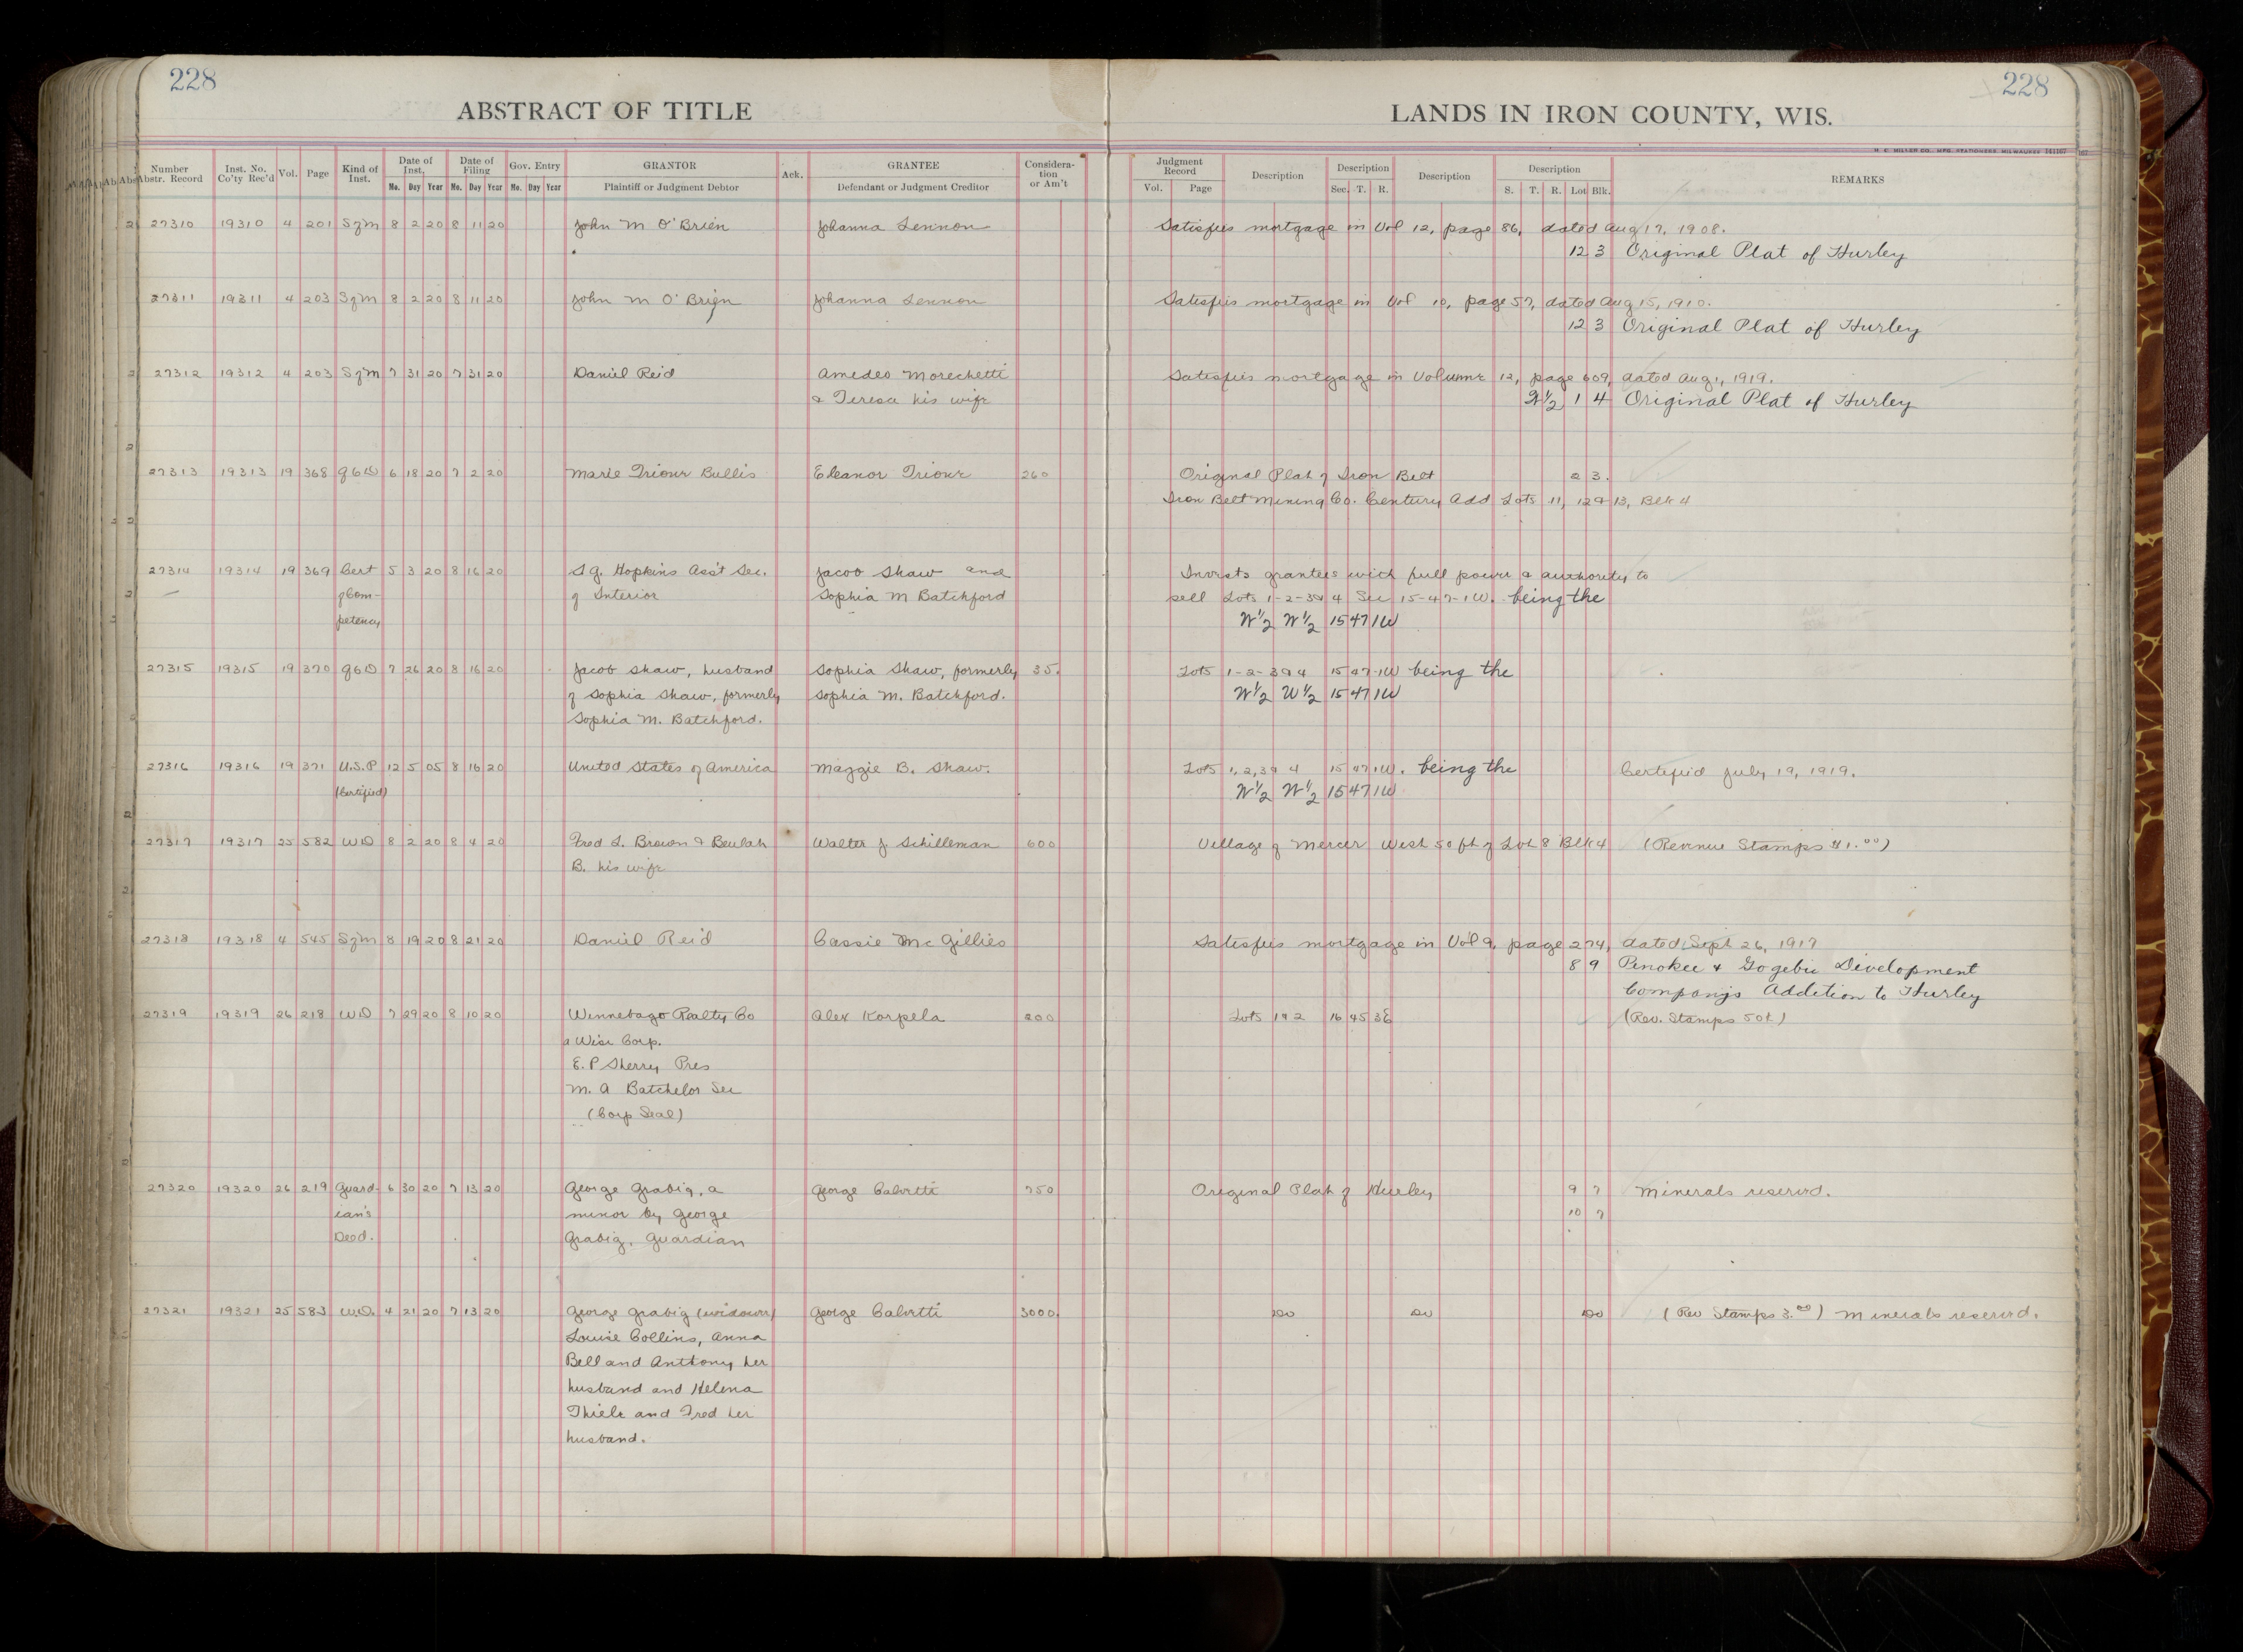 228
228
ABSTRACT OF TITLE
LANDS IN IRON COUNTY, WIS.
H. C. MILLER CO. MFG. STATIONERS, MILWAUKEE 141167
Number Abstr. Record Inst. No. Co'ty Rec'd Vol. Page Kind of Inst. Date of Inst. Mo. Day Year Date of Filing Mo. Day Year Gov. Entry Mo. Day Year GRANTOR Plaintiff or Judgment Debtor Ack. GRANTEE Defendant or Judgment Creditor Considera-tion or Am't Judgment Record Vol. Page Description Description Sec. T. R. Description Description S. T. R. Lot Blk. REMARKS
27310 19310 4 201 SofM 8 2 20 8 11 20 John M O'Brien Johanna Lennon Satisfies mortgage in Vol 12, page 86, dated Aug 17, 1908.
12 3 Original Plat of Hurley
27311 19311 4 203 SofM 8 2 20 8 11 20 John M O'Brien Johanna Lennon Satisfies mortgage in Vol 10, page 57, dated Aug 15, 1910.
12 3 Original Plat of Hurley
27312 19312 4 203 SofM 7 31 20 7 31 20 Daniel Reid Amedeo Morechetti Satisfies mortgage in Volume 12, page 609, dated Aug 1, 1919.
& Teresa his wife W½ 1 4 Original Plat of Hurley
27313 19313 19 368 QCD 6 18 20 7 2 20 Marie Trione Bullis Eleanor Trione 260 Original Plat of Iron Belt 2 3.
Iron Belt Mining Co. Century Add Lots 11, 12 & 13, Blk 4
27314 19314 19 369 Cert 5 3 20 8 16 20 S G. Hopkins Ass't Sec. Jacob Shaw and Invests grantees with full power & authority to
of Com- of Interior Sophia M Batchford sell Lots 1-2-3 & 4 Sec 15-47-1W. being the
petency W½ W½ 15 47 1W
27315 19315 19 370 QCD 7 26 20 8 16 20 Jacob Shaw, husband Sophia Shaw, formerly 35. Lots 1-2-3 & 4 15 47-1W being the
of Sophia Shaw, formerly Sophia M. Batchford. W½ W½ 15 47 1W
Sophia M. Batchford.
27316 19316 19 371 U.S.P 12 5 05 8 16 20 United States of America Maggie B. Shaw. Lots 1, 2, 3 & 4 15 47 1W. being the Certified July 19, 1919.
(Certified) W½ W½ 15 47 1W
27317 19317 25 582 WD 8 2 20 8 4 20 Fred L. Brown & Beulah Walter J Schilleman 600 Village of Mercer West 50 ft of Lot 8 Blk 4 (Revenue Stamps $1.00)
B. his wife
27318 19318 4 545 SofM 8 19 20 8 21 20 Daniel Reid Cassie McGillies Satisfies mortgage in Vol 9, page 274, dated Sept 26, 1917
8 9 Penokee & Gogebic Development
Company's Addition to Hurley
27319 19319 26 218 WD 7 29 20 8 10 20 Winnebago Realty Co Alex Korpela 200 Lots 1 & 2 16 45 3E (Rev. Stamps 50¢)
a Wisc Corp.
E. P Sherry Pres
M. A Batchelor Sec
(Corp Seal)
27320 19320 26 219 Guard- 6 30 20 7 13 20 George Grabig, a George Calvetti 750 Original Plat of Hurley 9 7 Minerals reserved.
ian's minor by George 10 7
Deed. Grabig, Guardian
27321 19321 25 583 W.D. 4 21 20 7 13 20 George Grabig (widower) George Calvetti 3000. Do Do Do (Rev Stamps 3.00) Minerals reserved.
Louise Collins, Anna
Bell and Anthony her
husband and Helena
Thiele and Fred her
husband.